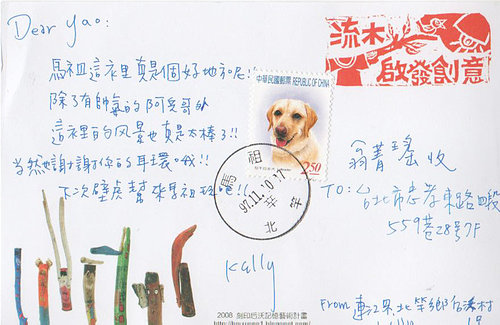 Dear Yao:
馬祖這裡真是個好地方呢!
除了有帥氣的阿兵哥外
這裡的风景也真是太棒了!!
當然也謝謝你的耳環哦!!
下次壁虎幫來馬祖玩吧!!
Kally
流木
啟發創意
中華民國郵票 REPUBLIC OF CHINA
250
馬祖
97.11.10.17
北竿
翁菁瑤 收
TO: 台北市忠孝東路四段
559巷28號7F
From 連江縣北竿鄉后沃村
2008 刻印后沃記憶藝術計畫